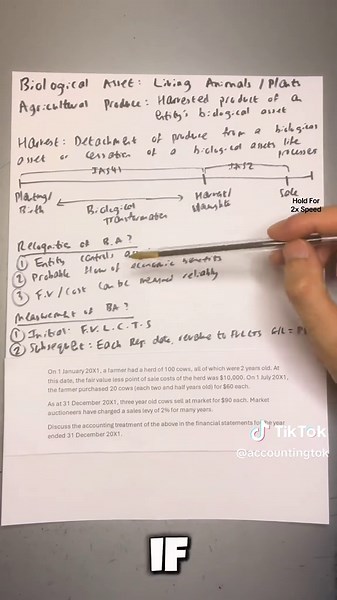 Biological Asset: Living Animals / Plants
Agricultural Produce: Harvested product of a
Entity's biological asset
Harvest: Detachment of produce from a biological
asset or cessation of a biological assets life
processes
IAS41
IAS2
Planting/
Birth
Biological
Transformation
Harvest/
Slaughter
Sale
Hold For
2x Speed
Recognition of B.A?
① Entity controls
② Probable flow of economic benefits
③ F.V / Cost can be measured reliably
Measurement of BA?
① Initial: F.V.L.C.T.S
② Subsequent: Each Rep. date, revalue to FVLCTS G/L = P
On 1 January 20X1, a farmer had a herd of 100 cows, all of which were 2 years old. At
this date, the fair value less point of sale costs of the herd was $10,000. On 1 July 20X1,
the farmer purchased 20 cows (each two and half years old) for $60 each.
As at 31 December 20X1, three year old cows sell at market for $90 each. Market
auctioneers have charged a sales levy of 2% for many years.
Discuss the accounting treatment of the above in the financial statements for the year
ended 31 December 20X1.
TikTok
@accountingtok
IF